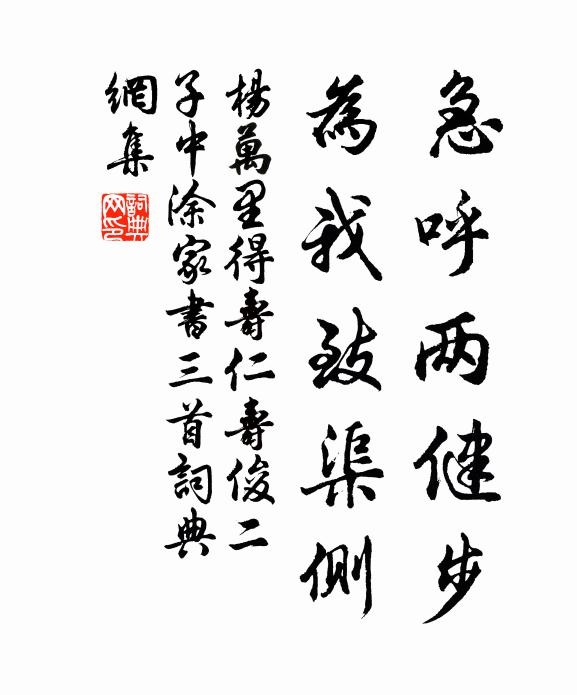 急呼两健步
為我致渠側
楊萬里得壽仁壽俊二
子中涂家書三首詞典
網集
詞典
网印